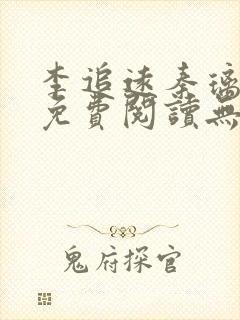 李追遠秦璃
免費閱讀無
鬼府探官